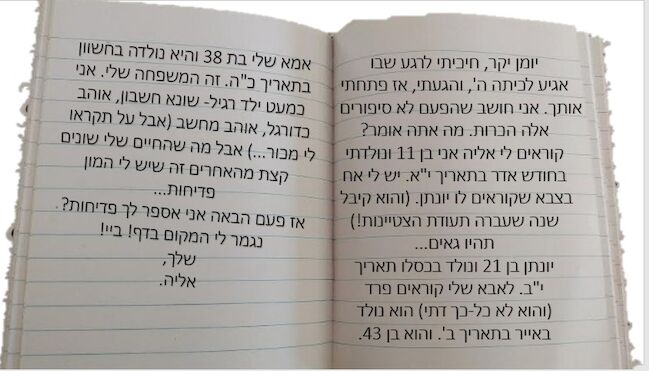 יומן יקר, חיכיתי לרגע שבו
אגיע לכיתה ה', והגעתי, אז פתחתי
אותך. אני חושב שהפעם לא סיפורים
אלה הכרות. מה אתה אומר?
קוראים לי אליה אני בן 11 ונולדתי
בחודש אדר בתאריך י"א. יש לי אח
בצבא שקוראים לו יונתן. (והוא קיבל
שנה שעברה תעודת הצטיינות!)
תהיו גאים...
יונתן בן 21 ונולד בכסלו תאריך
י"ב. לאבא שלי קוראים פרד
(והוא לא כל-כך דתי) הוא נולד
באייר בתאריך ב'. והוא בן 43.
אמא שלי בת 38 והיא נולדה בחשוון
בתאריך כ"ה. זה המשפחה שלי. אני
כמעט ילד רגיל- שונא חשבון, אוהב
כדורגל, אוהב מחשב (אבל על תקראו
לי מכור...) אבל מה שהחיים שלי שונים
קצת מהאחרים זה שיש לי המון
פדיחות...
אז פעם הבאה אני אספר לך פדיחות?
נגמר לי המקום בדף! ביי!
שלך,
אליה.